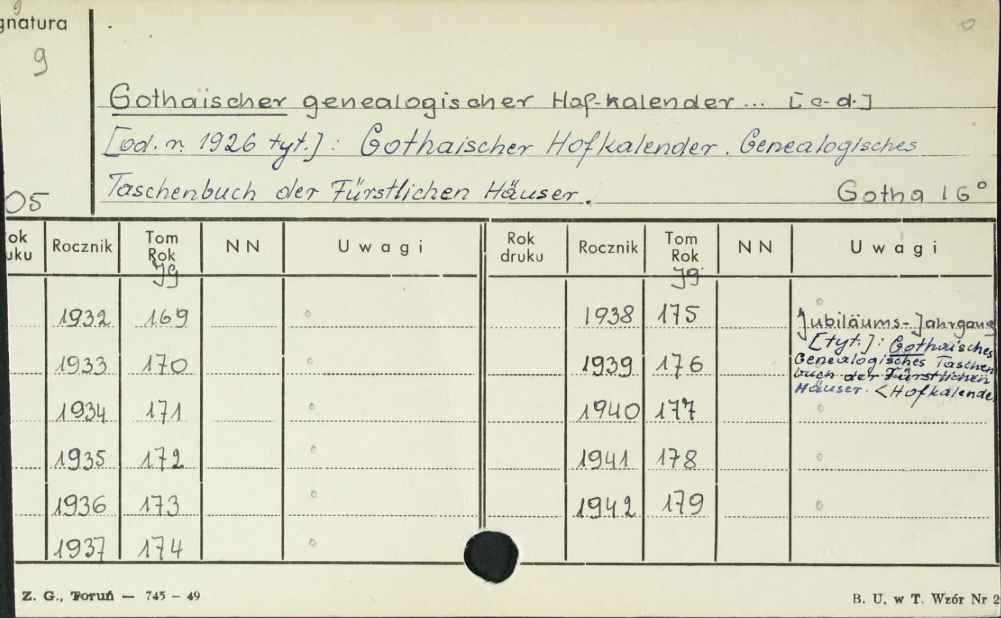 gnatura
9
9
Gothaischer genealogischer Hof-kalender... [c.d.]
[od. r. 1926 tyt.]: Gothaischer Hofkalender. Genealogisches
Taschenbuch der Fürstlichen Häuser. Gotha 16°
05
ok uku Rocznik Tom Rok NN Uwagi Rok druku Rocznik Tom Rok NN Uwagi
Jg Jg
1932 169 1938 175 Jubiläums-Jahrgang
[tyt.]: Gothaisches
1933 170 1939 176 Genealogisches Taschen
buch der Fürstlichen
Häuser. <Hofkalende
1934 171 1940 177
1935 172 1941 178
1936 173 1942 179
1937 174
Z. G., Toruń — 745 - 49 B. U. w T. Wzór Nr 2